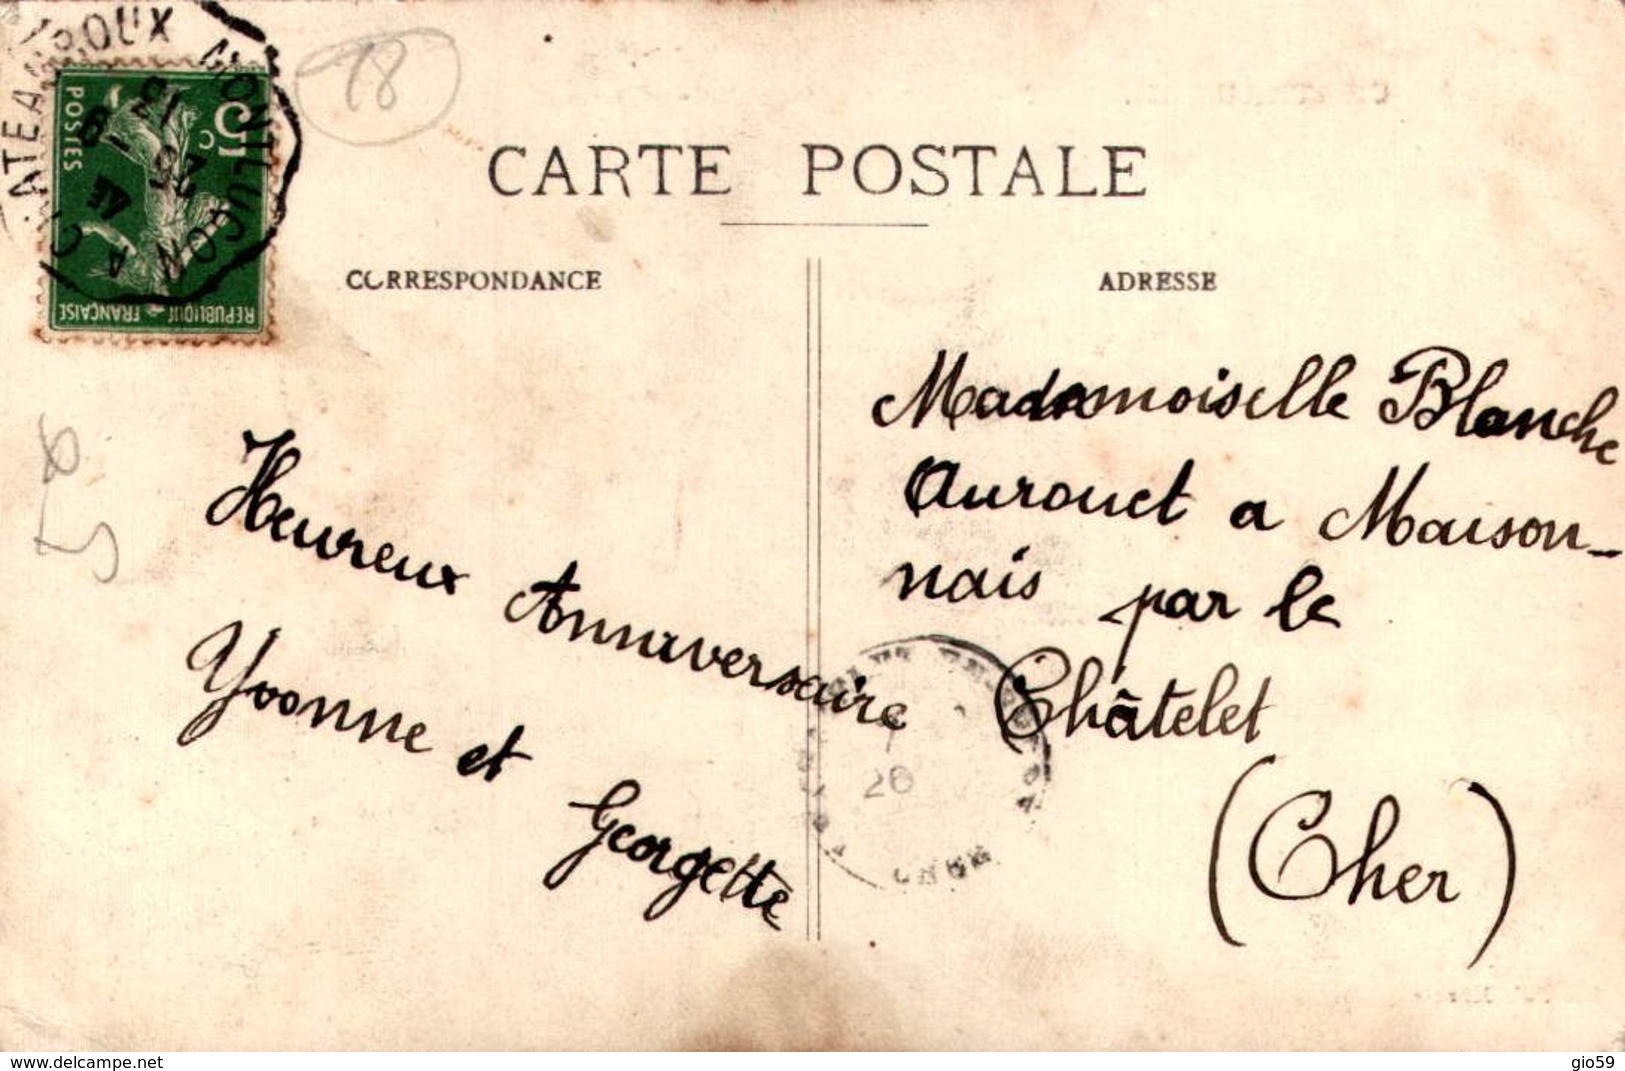 CHATEAUROUX A MONTLUCON
POSTES
5c
REPUBLIQUE FRANÇAISE
18
CARTE POSTALE
CORRESPONDANCE
ADRESSE
Heureux Anniversaire
Yvonne et Georgette
Mademoiselle Blanche
Aurouet a Maison-
nais par le
Châtelet
(Cher)
26
CHER
www.delcampe.net
gio59